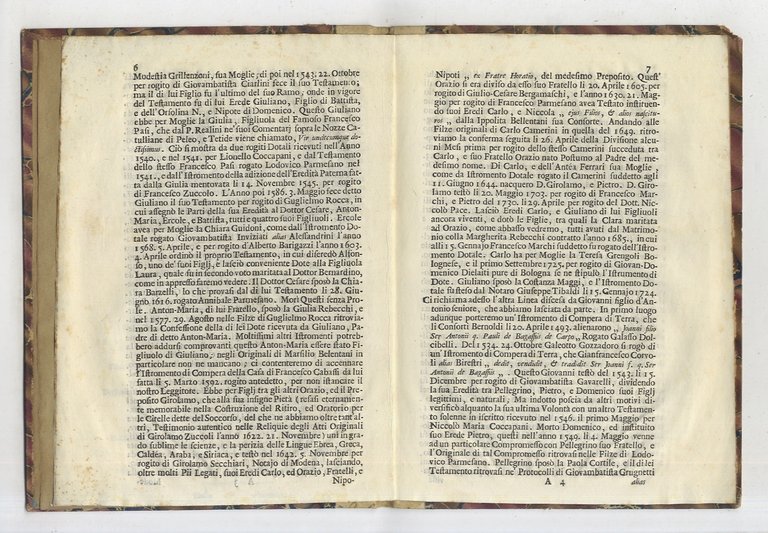 6
Modestia Grillenzoni, sua Moglie; di poi nel 1543. 22. Ottobre
per rogito di Giovambatista Ciarlini fece il suo Testamento;
ma il di lui Figlio fu l'ultimo del suo Ramo, onde in vigore
del Testamento fu di lui Erede Giuliano, Figlio di Battista,
e dell'Orsolina N., e Nipote di Domenico. Questo Giuliano
ebbe per Moglie la Giulia, Figliuola del Famoso Francesco
Pasi, che dal P. Realini ne' suoi Comentarj sopra le Nozze Ca-
tulliane di Peleo, e Tetide viene chiamato, Vir undecumque do-
ctissimus. Ciò si mostra da due rogiti Dotali ricevuti nell'Anno
1540., e nel 1541. per Lionello Coccapani, e dal Testamento
dello stesso Francesco Pasi rogato Lodovico Parmesano nel
1541., e dall'Istromento della adizione dell'Eredità Paterna fat-
ta dalla Giulia mentovata li 14. Novembre 1545. per rogito
di Francesco Zuccolo. L'Anno poi 1586. 3. Maggio fece detto
Giuliano il suo Testamento per rogito di Guglielmo Rocca, in
cui assegnò le Parti della sua Eredità al Dottor Cesare, Anton-
Maria, Ercole, e Battista, tutti e quattro suoi Figliuoli. Ercole
avea per Moglie la Chiara Guidoni, come dall'Istromento Do-
tale rogato Giovambatista Invitiati alias Alessandrini l'anno
1568. 5. Aprile, e per rogito d'Alberto Barigazzi l'anno 1603.
4. Aprile ordinò il proprio Testamento, in cui diseredò Alfon-
so, uno de' suoi Figlj, e lasciò conveniente Dote alla Figliuola
Laura, quale fu in secondo voto maritata al Dottor Bernardino,
come in appresso faremo vedere. Il Dottor Cesare sposò la Chia-
ra Barzelli, lo che provasi dal di lui Testamento li 28. Giu-
gno 1616. rogato Annibale Parmesano. Morì Questi senza Pro-
le. Anton-Maria, di lui Fratello, sposò la Giulia Rebecchi, e
nel 1577. 29. Agosto nelle Filze di Guglielmo Rocca ritrovia-
mo la Confessione della di lei Dote ricevuta da Giuliano, Pa-
dre di detto Anton-Maria. Moltissimi altri Istromenti potreb-
bero addursi comprovanti questo Anton-Maria essere stato Fi-
gliuolo di Giuliano; negli Originali di Marsilio Belentani in
particolare non ne mancano; ci contenteremo di accennare
l'Istromento di Compera della Casa di Francesco Cabassi da lui
fatta li 5. Marzo 1592. rogito antedetto, per non istancare il
nostro Leggitore. Ebbe per Figlj tra gli altri Orazio, ed il Pre-
posito Girolamo, che alla sua insigne Pietà (resasi eternamen-
te memorabile nella Costruzione del Ritiro, ed Oratorio per
le Citelle dette del Soccorso, del che ne abbiamo oltre tant'al-
tri, Testimonio autentico nelle Reliquie degli Atti Originali
di Girolamo Zuccoli l'anno 1622. 21. Novembre) unì in gra-
do sublime le scienze, e la perizia delle Lingue Ebrea, Greca,
Caldéa, Araba, e Siriaca, e testò nel 1642. 5. Novembre per
rogito di Girolamo Secchiari, Notajo di Modena, lasciando,
oltre molti Pii Legati, suoi Eredi Carlo, ed Orazio, Fratelli, e
Nipo-
7
Nipoti „ ex Fratre Horatio, del medesimo Preposito. Quest'
Orazio si era diviso da esso suo Fratello li 20. Aprile 1605. per
rogito di Giulio-Cesare Bergamaschi, e l'anno 1630. 21. Mag-
gio per rogito di Francesco Parmesano avea Testato instituen-
do suoi Eredi Carlo, e Niccola „ ejus Filios, & alios nascitu-
ros „ dalla Ippolita Bellentani sua Consorte. Andando alle
Filze originali di Carlo Camerini in quella del 1649. ritro-
viamo la conferma seguita li 26. Aprile della Divisione alcu-
ni Mesi prima per rogito dello stesso Camerini succeduta tra
Carlo, e suo Fratello Orazio nato Postumo al Padre del me-
desimo nome. Di Carlo, e dell'Antéa Ferrari sua Moglie,
come da Istromento Dotale rogato il Camerini suddetto agli
11. Giugno 1644. nacquero D. Girolamo, e Pietro. D. Giro-
lamo testò li 20. Maggio 1703. per rogito di Francesco Mar-
chi, e Pietro del 1730. li 29. Aprile per rogito del Dott. Nic-
colò Pace. Lasciò Eredi Carlo, e Giuliano di lui Figliuoli
ancora viventi, e dotò le Figlie, tra quali la Clara maritata
ad Orazio, come abbasso vedremo, tutti avuti dal Matrimo-
nio colla Margherita Rebecchi contratto l'anno 1685., in cui
alli 15. Gennajo Francesco Marchi suddetto fu rogato dell'Istro-
mento Dotale. Carlo ha per Moglie la Teresa Grengoli Bo-
lognese, e il primo Settembre 1725. per rogito di Giovan-Do-
menico Dielaiti pure di Bologna se ne stipulò l'Istromento di
Dote. Giuliano sposò la Costanza Maggi, e l'Istromento Dota-
tale fu steso dal Notaro Giuseppe Tibaldi li 15. Gennajo 1724.
Ci richiama adesso l'altra Linea discesa da Giovanni figlio d'An-
tonio seniore, che abbiamo lasciata da parte. In primo luogo
adunque porteremo un'Istromento di Compera di Terra, che
li Consorti Bernoldi li 20. Aprile 1493. alienarono „ Joanni filio
Ser Antonii q. Pauli de Bagassis de Carpo „ Rogato Galasso Dol-
cibelli. Del 1534. 24. Ottobre Galeotto Gozzadoro si rogò di
un'Istromento di Compera di Terra, che Gianfrancesco Corvo-
li alias Birestri „ dedit, vendidit, & tradidit Ser Joanni f. q. Ser
Antonii de Bagassiis „. Questo Giovanni testò del 1543. li 15.
Dicembre per rogito di Giambatista Gavarelli, dividendo
la sua Eredità tra Pellegrino, Pietro, e Domenico suoi Figlj
legittimi, e naturali; Ma indotto poscia da altri motivi di-
versificò alquanto la sua ultima Volontà con un altro Testamen-
to solenne in iscritto ricevuto nel 1546. il primo Maggio per
Niccolò Maria Coccapani. Morto Domenico, ed instituito
suo Erede Pietro, questi nell'anno 1549. li 4. Maggio venne
ad un particolare Compromesso con Pellegrino suo Fratello, e
l'Originale di tal Compromesso ritrovasi nelle Filze di Lodo-
vico Parmesano. Pellegrino sposò la Paola Cortile, e il di lei
Testamento ritrovasi ne' Protocolli di Giovambatista Grugnetti
A 4 alias